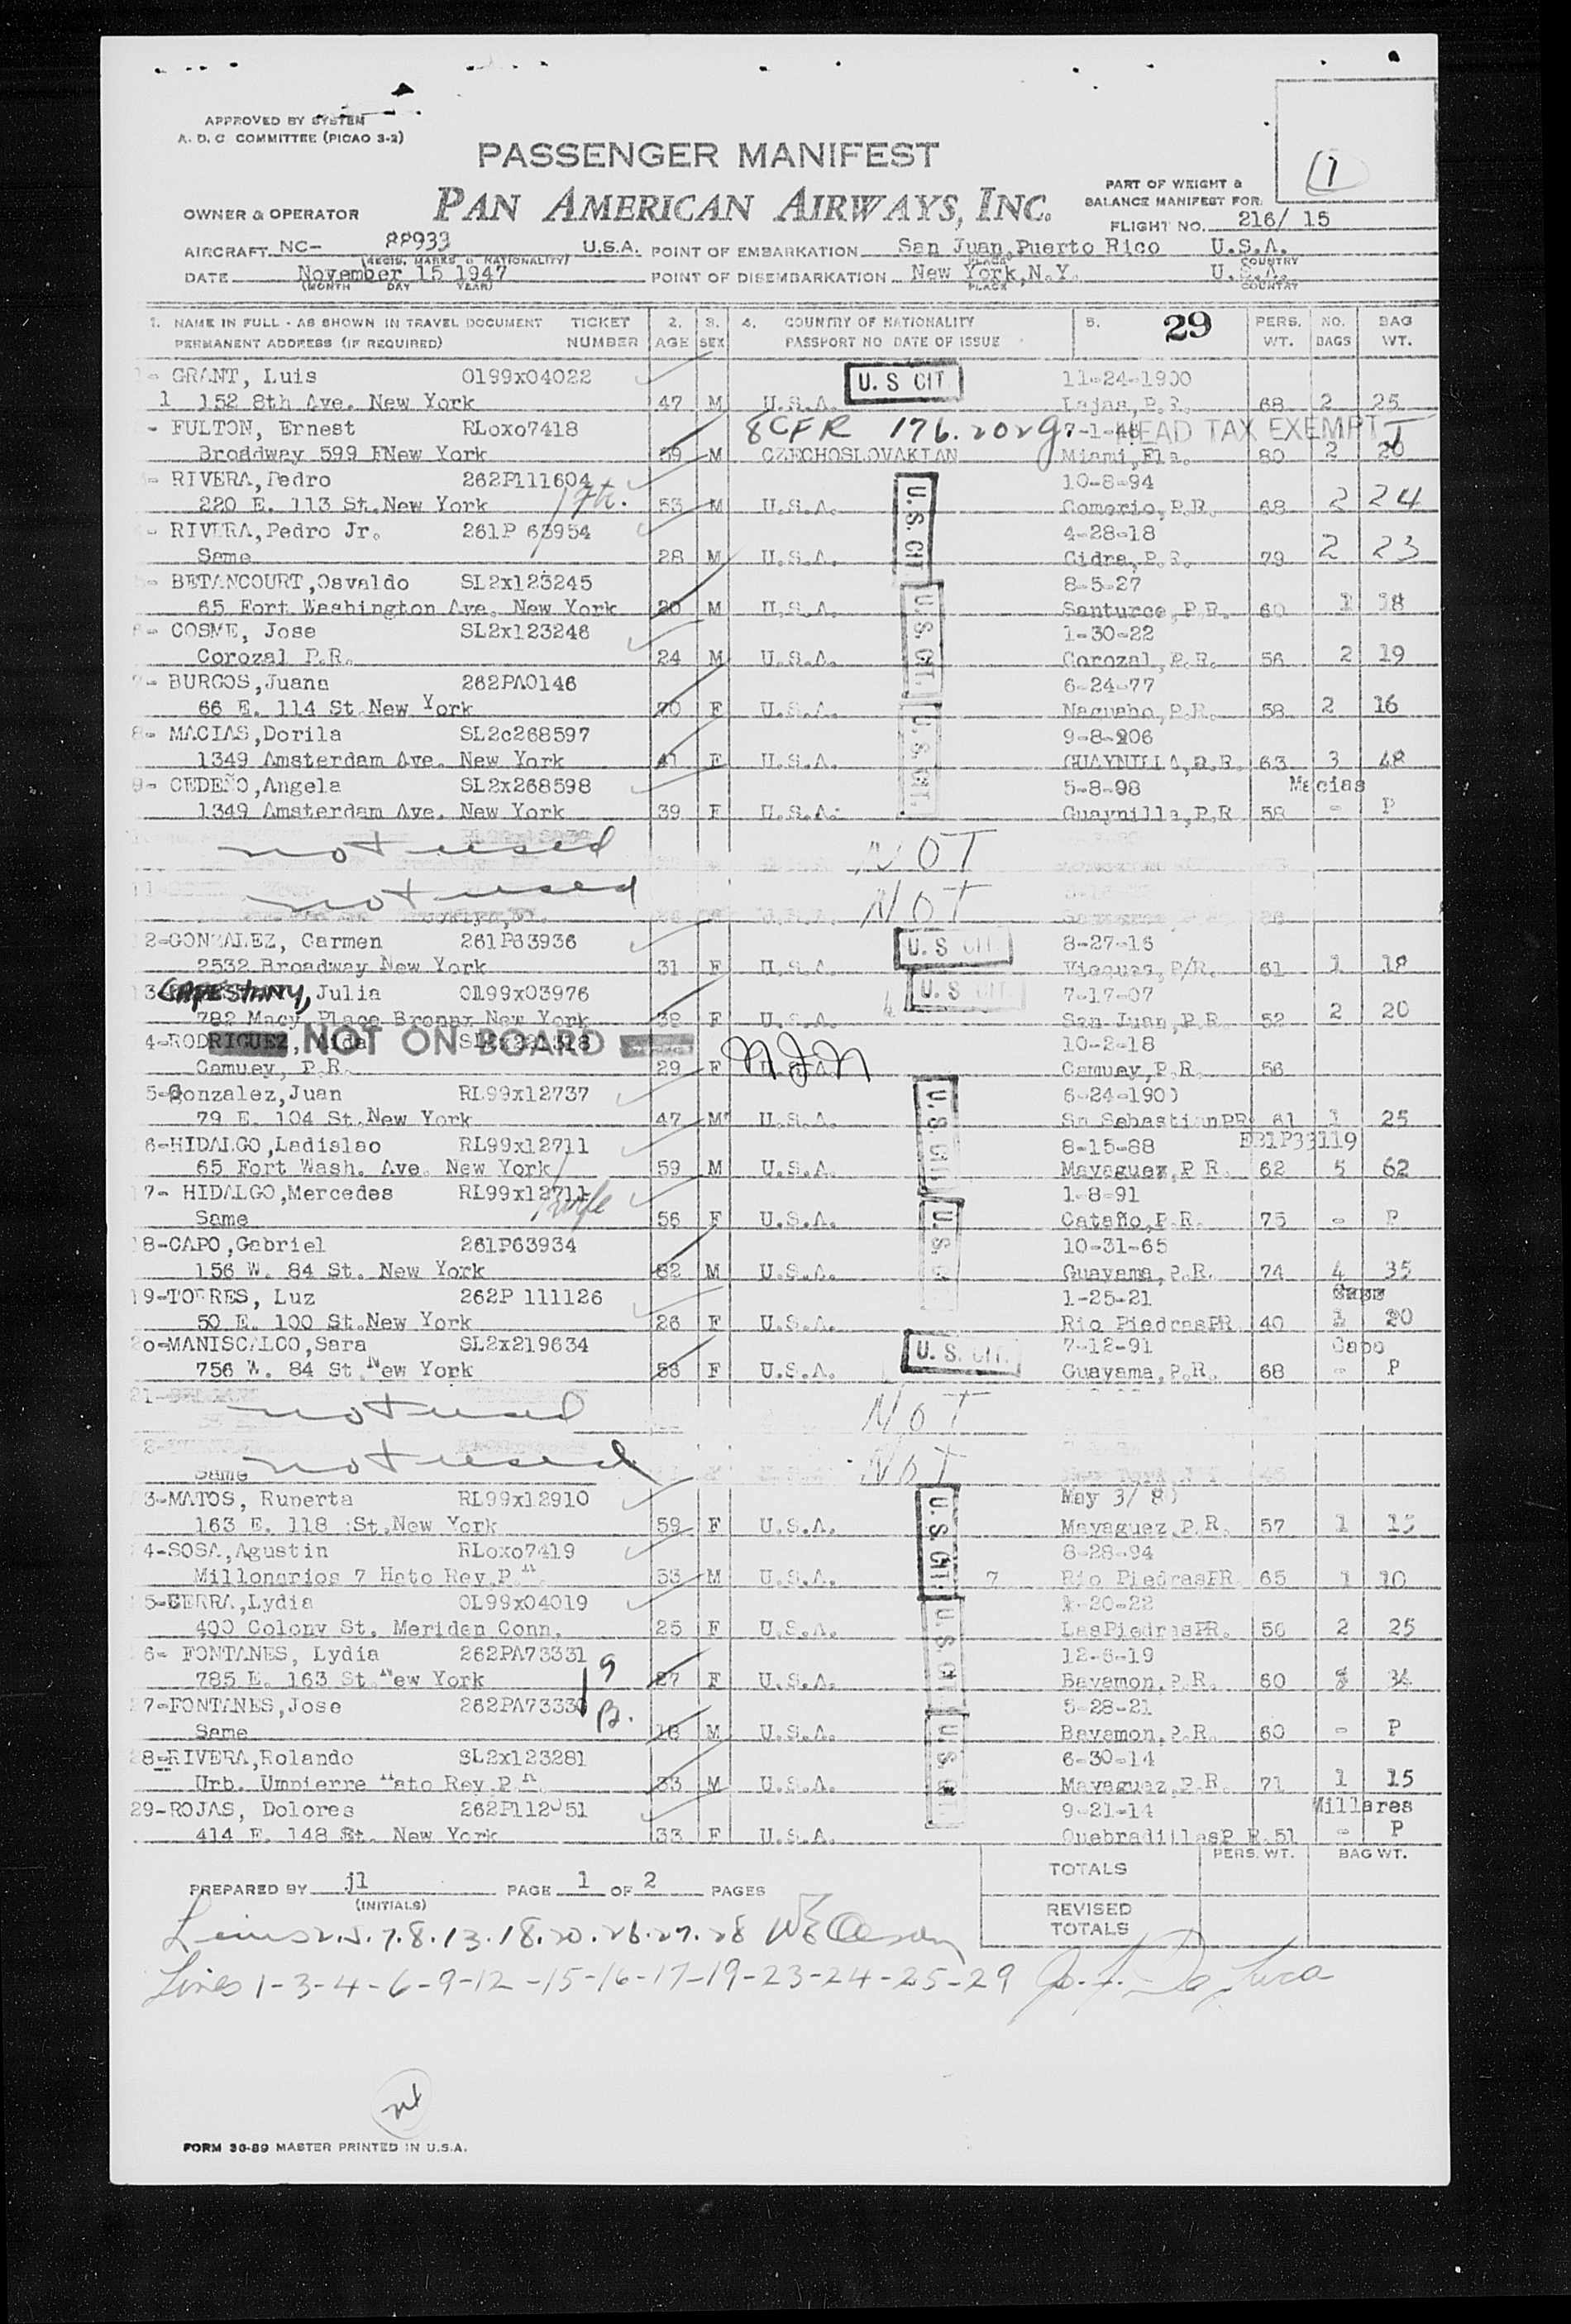 APPROVED BY SYSTEM
A. D. C COMMITTEE (PICAO 3-2)
PASSENGER MANIFEST
(1)
PART OF WEIGHT &
BALANCE MANIFEST FOR
OWNER & OPERATOR PAN AMERICAN AIRWAYS, INC.
FLIGHT NO. 216/ 15
AIRCRAFT NC- 88933 U.S.A. POINT OF EMBARKATION San Juan, Puerto Rico U.S.A.
(REGIS. MARKS & NATIONALITY) PLACE COUNTRY
DATE November 15 1947 POINT OF DISEMBARKATION New York, N.Y. U.S.A.
(MONTH DAY YEAR) PLACE COUNTRY
1. NAME IN FULL - AS SHOWN IN TRAVEL DOCUMENT TICKET 2. 3. 4. COUNTRY OF NATIONALITY 5. 29 PERS. NO. BAG
PERMANENT ADDRESS (IF REQUIRED) NUMBER AGE SEX PASSPORT NO DATE OF ISSUE WT. BAGS WT.
GRANT, Luis 0199x04022 U. S CIT. 11-24-1900
1 152 8th Ave. New York 47 M U.S.A. Lajas, P.R. 68 2 25
- FULTON, Ernest RLoxo7418 8 CFR 176.202g. 7-1-48 HEAD TAX EXEMPT
Broadway 599 New York 59 M CZECHOSLOVAKIAN Miami, Fla. 80 2 20
- RIVERA, Pedro 262P111604 10-8-94
220 E. 113 St. New York 53 M U.S.A. U.S. CIT Comerio, P.R. 68 2 24
- RIVERA, Pedro Jr. 261P 63954 4-28-18
Same 28 M U.S.A. Cidra, P.R. 79 2 23
- BETANCOURT, Osvaldo SL2x123245 8-5-27
65 Fort Washington Ave. New York 20 M U.S.A. U.S. CIT. Santurce, P.R. 60 1 18
6- COSME, Jose SL2x123246 1-30-22
Corozal P.R. 24 M U.S.A. Corozal, P.R. 56 2 19
7- BURGOS, Juana 262PA0146 6-24-77
66 E. 114 St New York 70 F U.S.A. Naguabo, P.R. 58 2 16
8- MACIAS, Dorila SL2c268597 U.S. CIT. 9-8-206
1349 Amsterdam Ave. New York 41 F U.S.A. GUAYNILLA, P.R. 63 3 48
9- CEDEÑO, Angela SL2x268598 5-8-98 Macias
1349 Amsterdam Ave. New York 39 F U.S.A. Guaynilla, P.R 58 - P
not used NOT
11
not used NOT
2-GONZALEZ, Carmen 261P63936 U. S CIT. 8-27-16
2532 Broadway New York 31 F U.S.A. Vieques, P/R. 61 1 18
3- CAPESTANY, Julia 0199x03976 U. S CIT. 7-17-07
782 Macy Place Bronx New York 38 F U.S.A. San Juan, P.R. 52 2 20
4-RODRIGUEZ, Aida NOT ON BOARD 10-2-18
Camuey, P.R. 29 F U.S.A. Camuey, P.R. 56
5-Gonzalez, Juan RL99x12737 6-24-1900
79 E. 104 St. New York 47 M U.S.A. U.S. CIT. Sn SebastianPR 61 1 25
6-HIDALGO, Ladislao RL99x12711 8-15-88 EB1P33119
65 Fort Wash. Ave. New York 59 M U.S.A. Mayaguez, P R. 62 5 62
7- HIDALGO, Mercedes RL99x12711 1-8-91
Same 56 F U.S.A. U.S. Cataño, P.R. 75 - P
8-CAPO, Gabriel 261P63934 10-31-65
156 W. 84 St. New York 82 M U.S.A. Guayama, P.R. 74 4 35
19-TORRES, Luz 262P 111126 1-25-21
50 E. 100 St. New York 26 F U.S.A. Rio PiedrasPR 40 1 20
20-MANISCALCO, Sara SL2x219634 U. S. CIT. 7-12-91 Capo
756 W. 84 St New York 56 F U.S.A. Guayama, P.R. 68 - P
21-
not used NOT
not used NOT
Same
3-MATOS, Ruperta RL99x12910 May 3/ 8
163 E. 118 St. New York 59 F U.S.A. U.S. CIT. Mayaguez, P.R. 57 1 15
4-SOSA, Agustin RLoxo7419 8-28-94
Millonarios 7 Hato Rey, P.R 53 M U.S.A. 7 Rio PiedrasPR 65 1 10
5-CERRA, Lydia OL99x04019 1-20-22
400 Colony St. Meriden Conn. 25 F U.S.A. U.S. CIT LasPiedrasPR. 56 2 25
6- FONTANES, Lydia 262PA73331 12-6-19
785 E. 163 St New York 27 F U.S.A. Bayamon, P.R. 60 34
7-FONTANES, Jose 262PA73330 5-28-21
Same M U.S.A. U.S. Bayamon, P.R. 60 - P
28-RIVERA, Rolando SL2x123281 6-30-14
Urb. Umpierre Hato Rey P.R 33 M U.S.A. Mayaguez, P.R. 71 1 15
29-ROJAS, Dolores 262P112051 9-21-14 Millares
414 E. 148 St. New York 33 F U.S.A. QuebradillasP R. 51 - P
PERS. WT. BAG WT.
TOTALS
PREPARED BY jl PAGE 1 OF 2 PAGES
(INITIALS)
REVISED
TOTALS
Lines 2.5.7.8.13.18.20.26.27.28
Lines 1-3-4-6-9-12-15-16-17-19-23-24-25-29
FORM 36-89 MASTER PRINTED IN U.S.A.